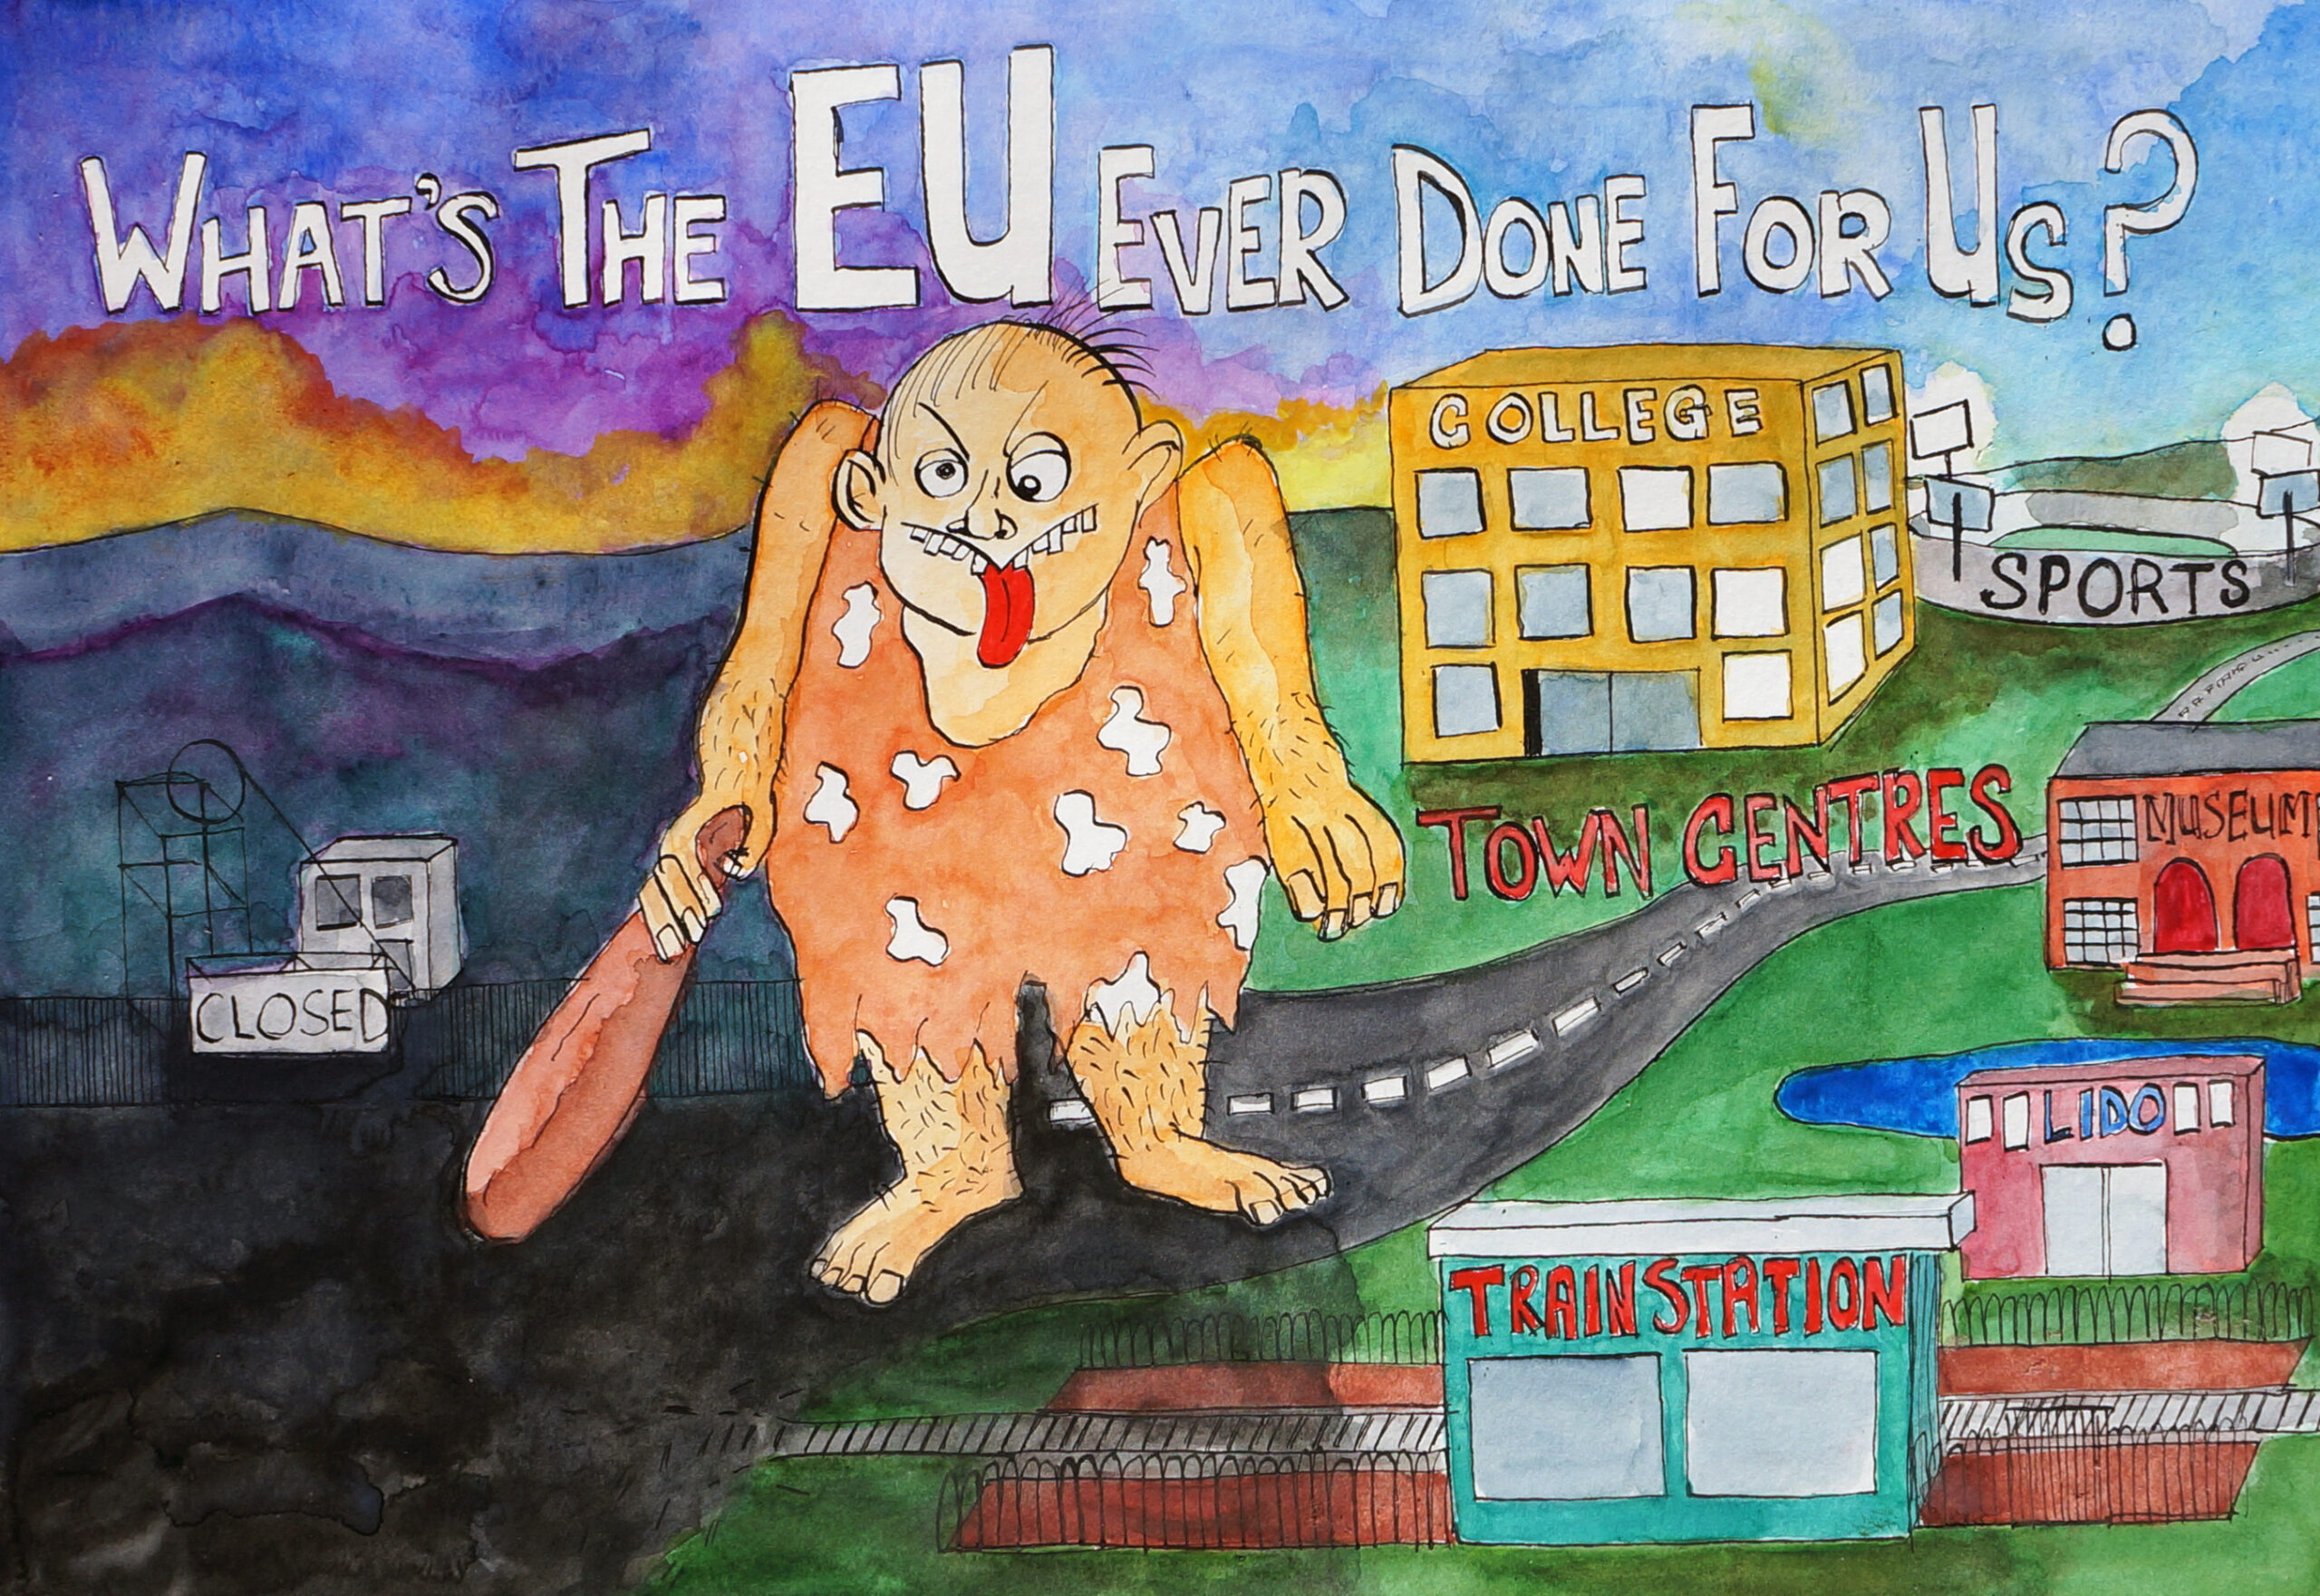 What's The EU Ever Done For Us?
COLLEGE
SPORTS
Town Centres
MUSEUM
CLOSED
LIDO
TRAIN STATION